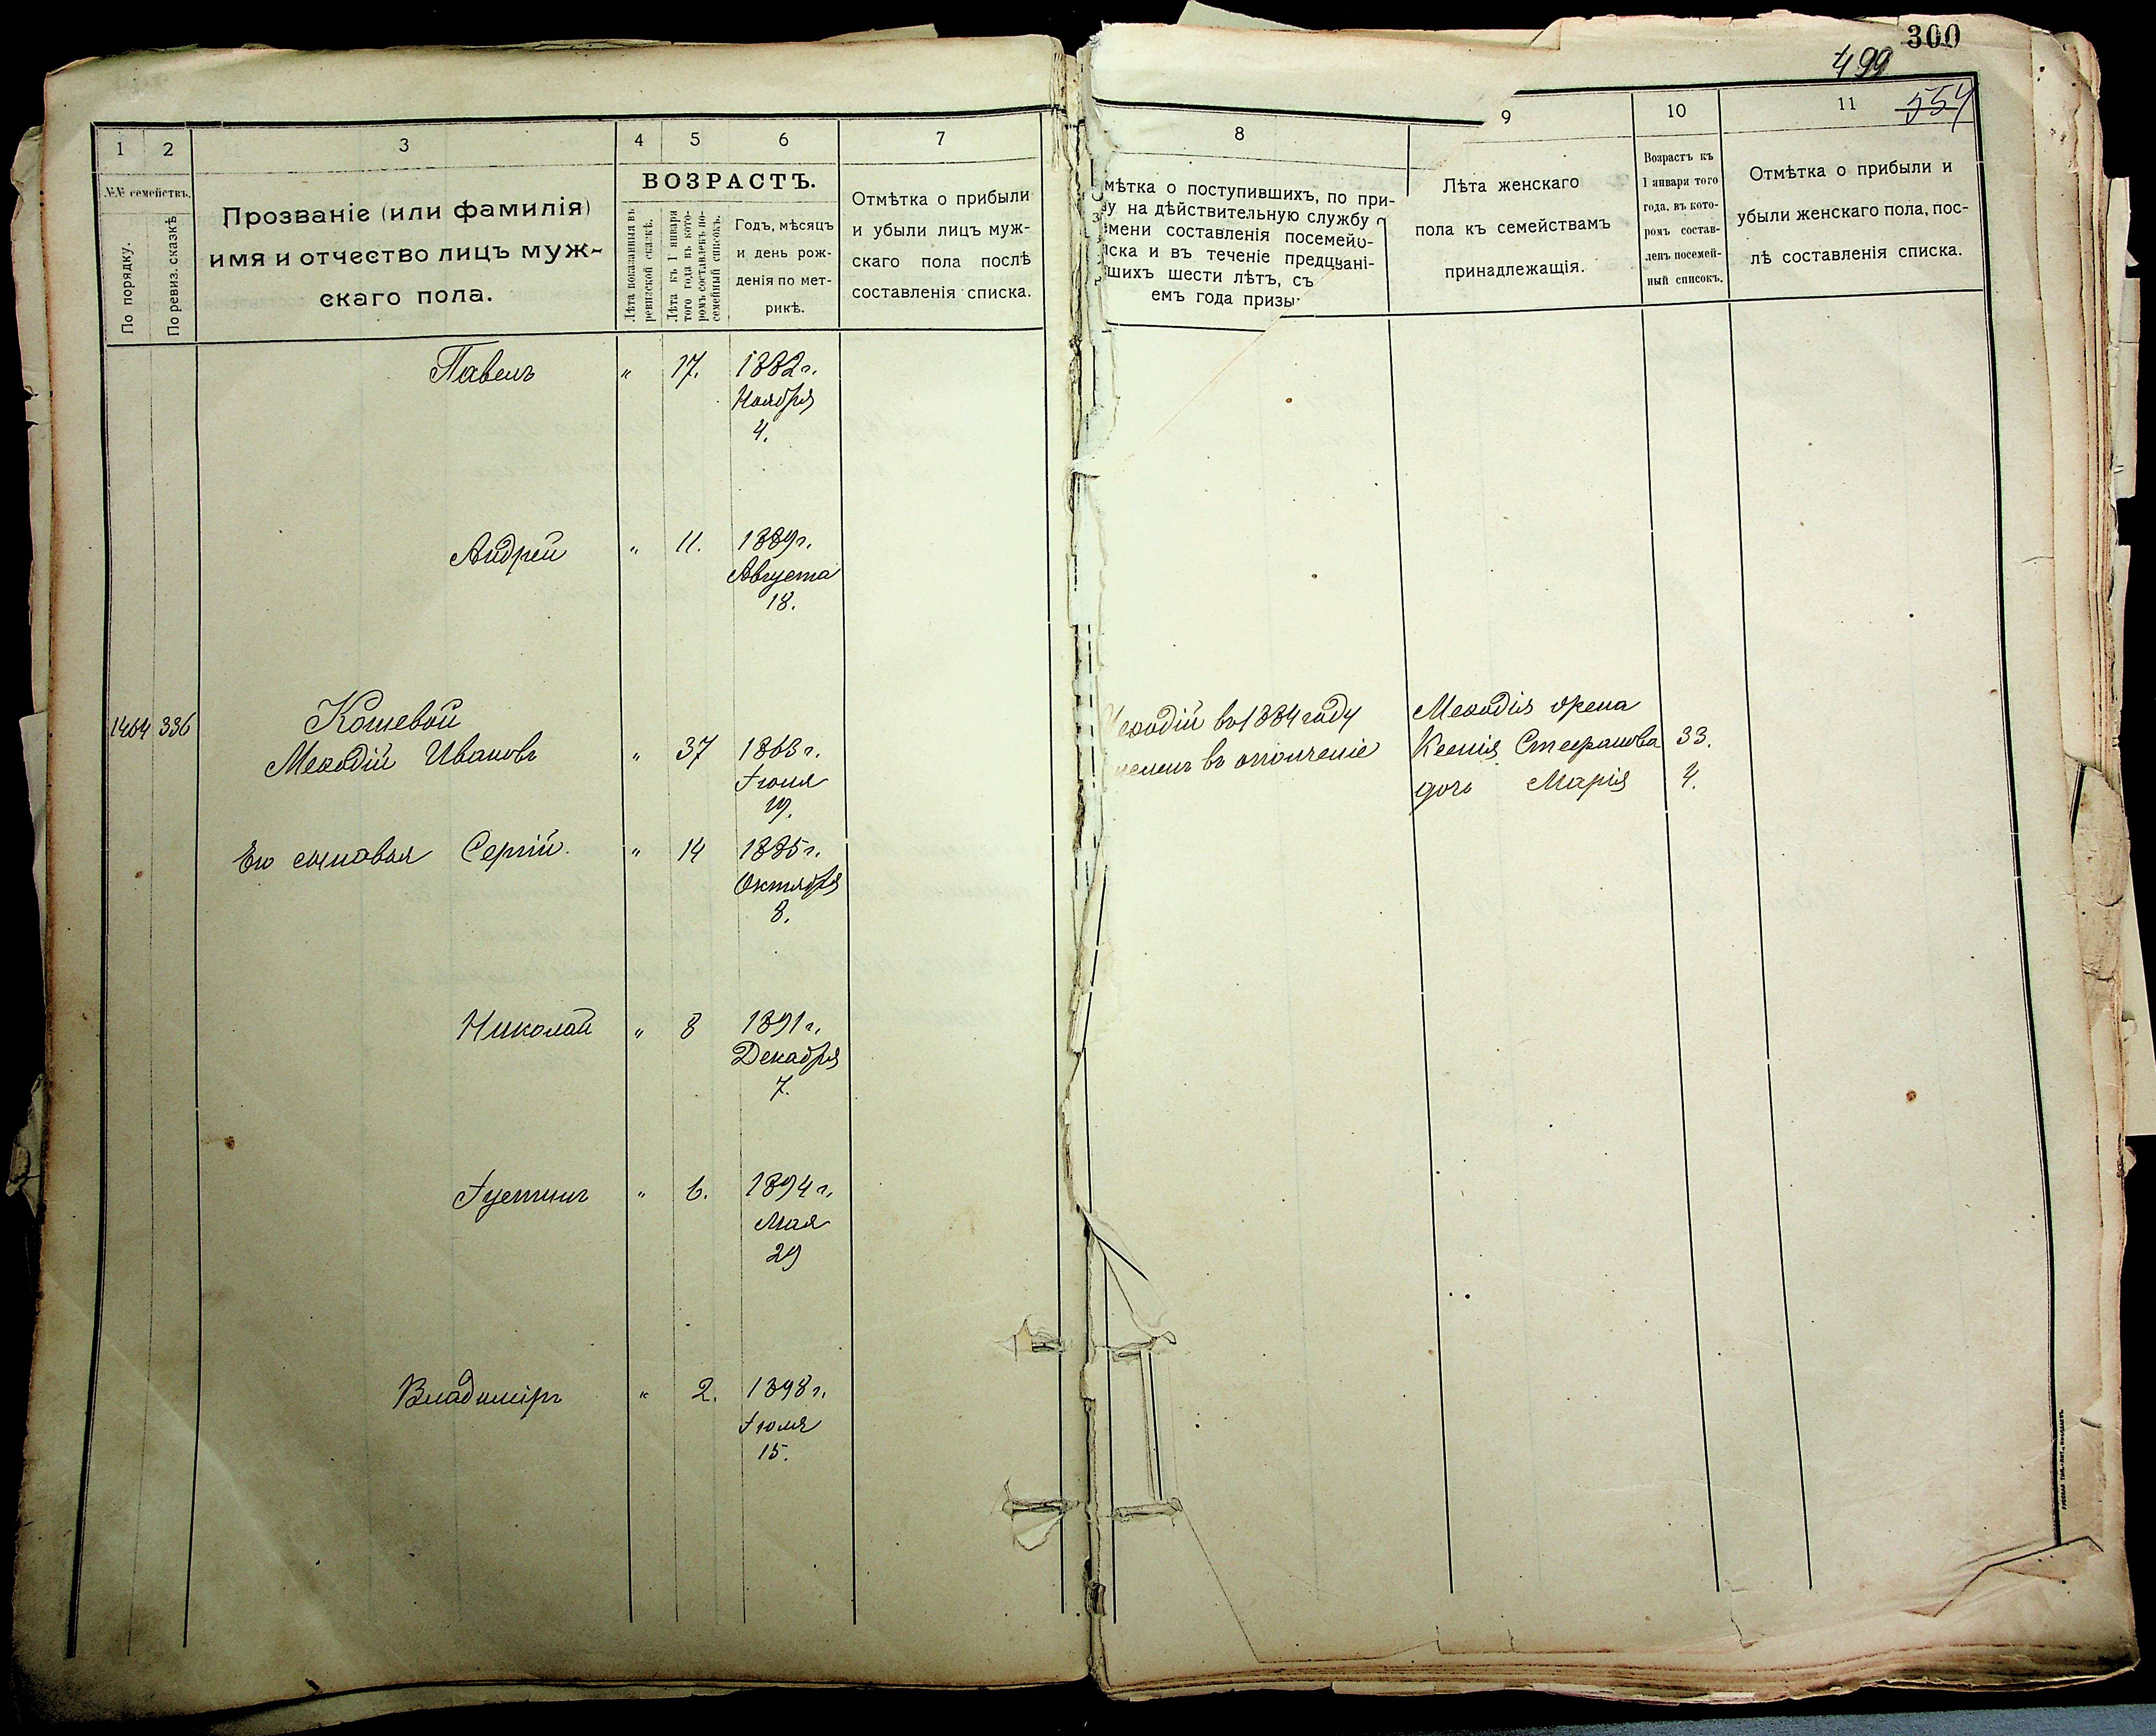 300
499
554
1
2
3
4
5
6
7
№№ семействъ.
По порядку.
По ревиз. сказкѣ
Прозваніе (или фамилія)
имя и отчество лицъ муж-
скаго пола.
ВОЗРАСТЪ.
Лѣта показанныя въ
ревизской сказкѣ.
Лѣта къ 1 января
того года въ кото-
ромъ составленъ по-
семейный списокъ.
Годъ, мѣсяцъ
и день рож-
денія по мет-
рикѣ.
Отмѣтка о прибыли
и убыли лицъ муж-
скаго пола послѣ
составленія списка.
Павелъ " 17. 1882 г.
Ноября
4.
Андрей " 11. 1889 г.
Августа
18.
1464 336 Кошевой
Меѳодій Ивановъ " 37 1863 г.
Іюня
19.
Его сыновья Сергій. " 14 1885 г.
Октября
8.
Николай " 8 1891 г.
Декабря
7.
Іустинъ " 6. 1894 г.
Мая
29
Владиміръ " 2. 1898 г.
Іюля
15.
8
9
10
11
мѣтка о поступившихъ, по при-
у на дѣйствительную службу
мени составленія посемей-
иска и въ теченіе
шихъ шести лѣтъ, съ
емъ года призы
Лѣта женскаго
пола къ семействамъ
принадлежащія.
Возрастъ къ
1 января того
года, въ кото-
ромъ состав-
ленъ посемей-
ный списокъ.
Отмѣтка о прибыли и
убыли женскаго пола, пос-
лѣ составленія списка.
еѳодій въ 1884 году
въ ополченіе
Меѳодія жена
Ксенія Стефанова 33.
дочь Марія 4.